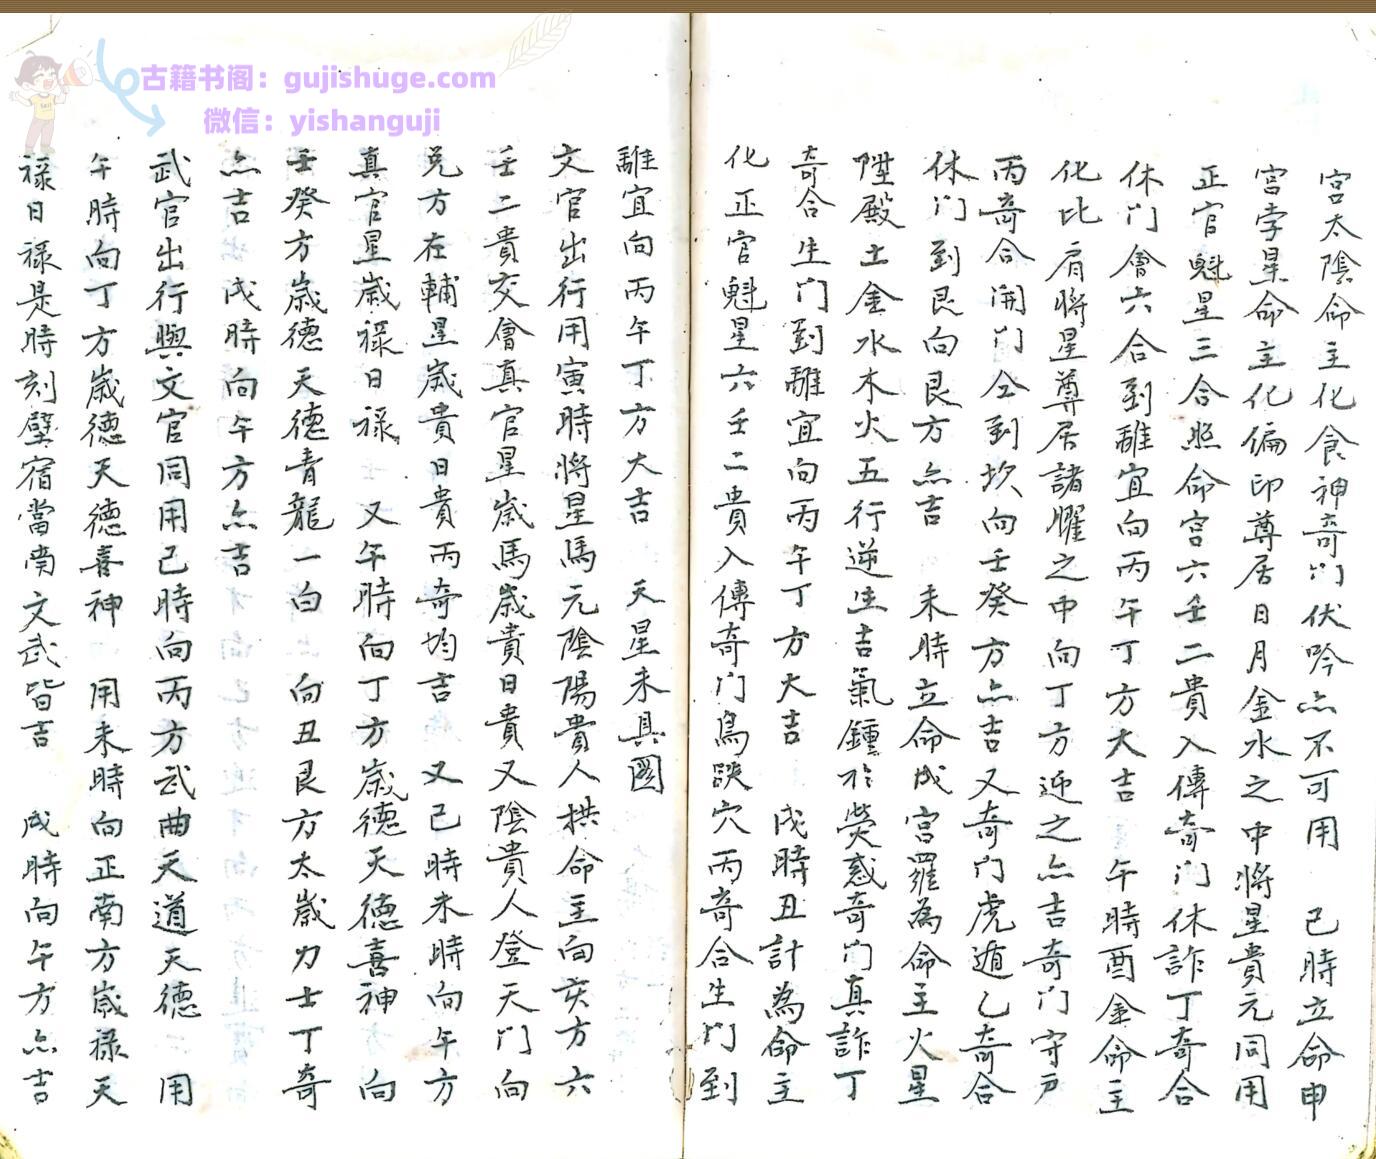 古籍书阁：gujishuge.com
微信：yishanguji
宮太陰命主化食神奇门伏吟点不可用　己時立命申
宮孛星命主化偏印尊居日月金水之中將星貴元同用
正官魁星三合照命宮六壬二貴入傳奇门休詐丁奇合
休门會六合到離宜向丙午丁方大吉　午時酉金命主
化比肩將星尊居諸曜之中向丁方迎之点吉奇门守戸
丙奇合開门仝到坎向壬癸方点吉又奇门虎遁乙奇合
休门到艮向艮方点吉　未時立命戌宮羅為命主火星
陞殿土金水木火五行逆生吉氣鍾於熒惑奇门真詐丁
奇合生门到離宜向丙午丁方大吉　戌時丑計為命主
化正官魁星六壬二貴入傳奇门鳥跌穴丙奇合生门到
離宜向丙午丁方大吉　天星未具圖
文官出行用寅時將星馬元陰陽貴人拱命主向亥方六
壬二貴交會真官星歲馬歲貴日貴又陰貴人登天门向
兌方在輔星歲貴日貴丙奇均吉　又己時未時向午方
真官星歲祿日祿　又午時向丁方歲德天德喜神　向
壬癸方歲德天德青龍一白　向丑艮方太歲力士丁奇
点吉　戌時向午方点吉
武官出行與文官同用己時向丙方武曲天道天德　用
午時向丁方歲德天德喜神　用未時向正南方歲祿天
祿日祿是時刻壁宿當南文武皆吉　戌時向午方点吉